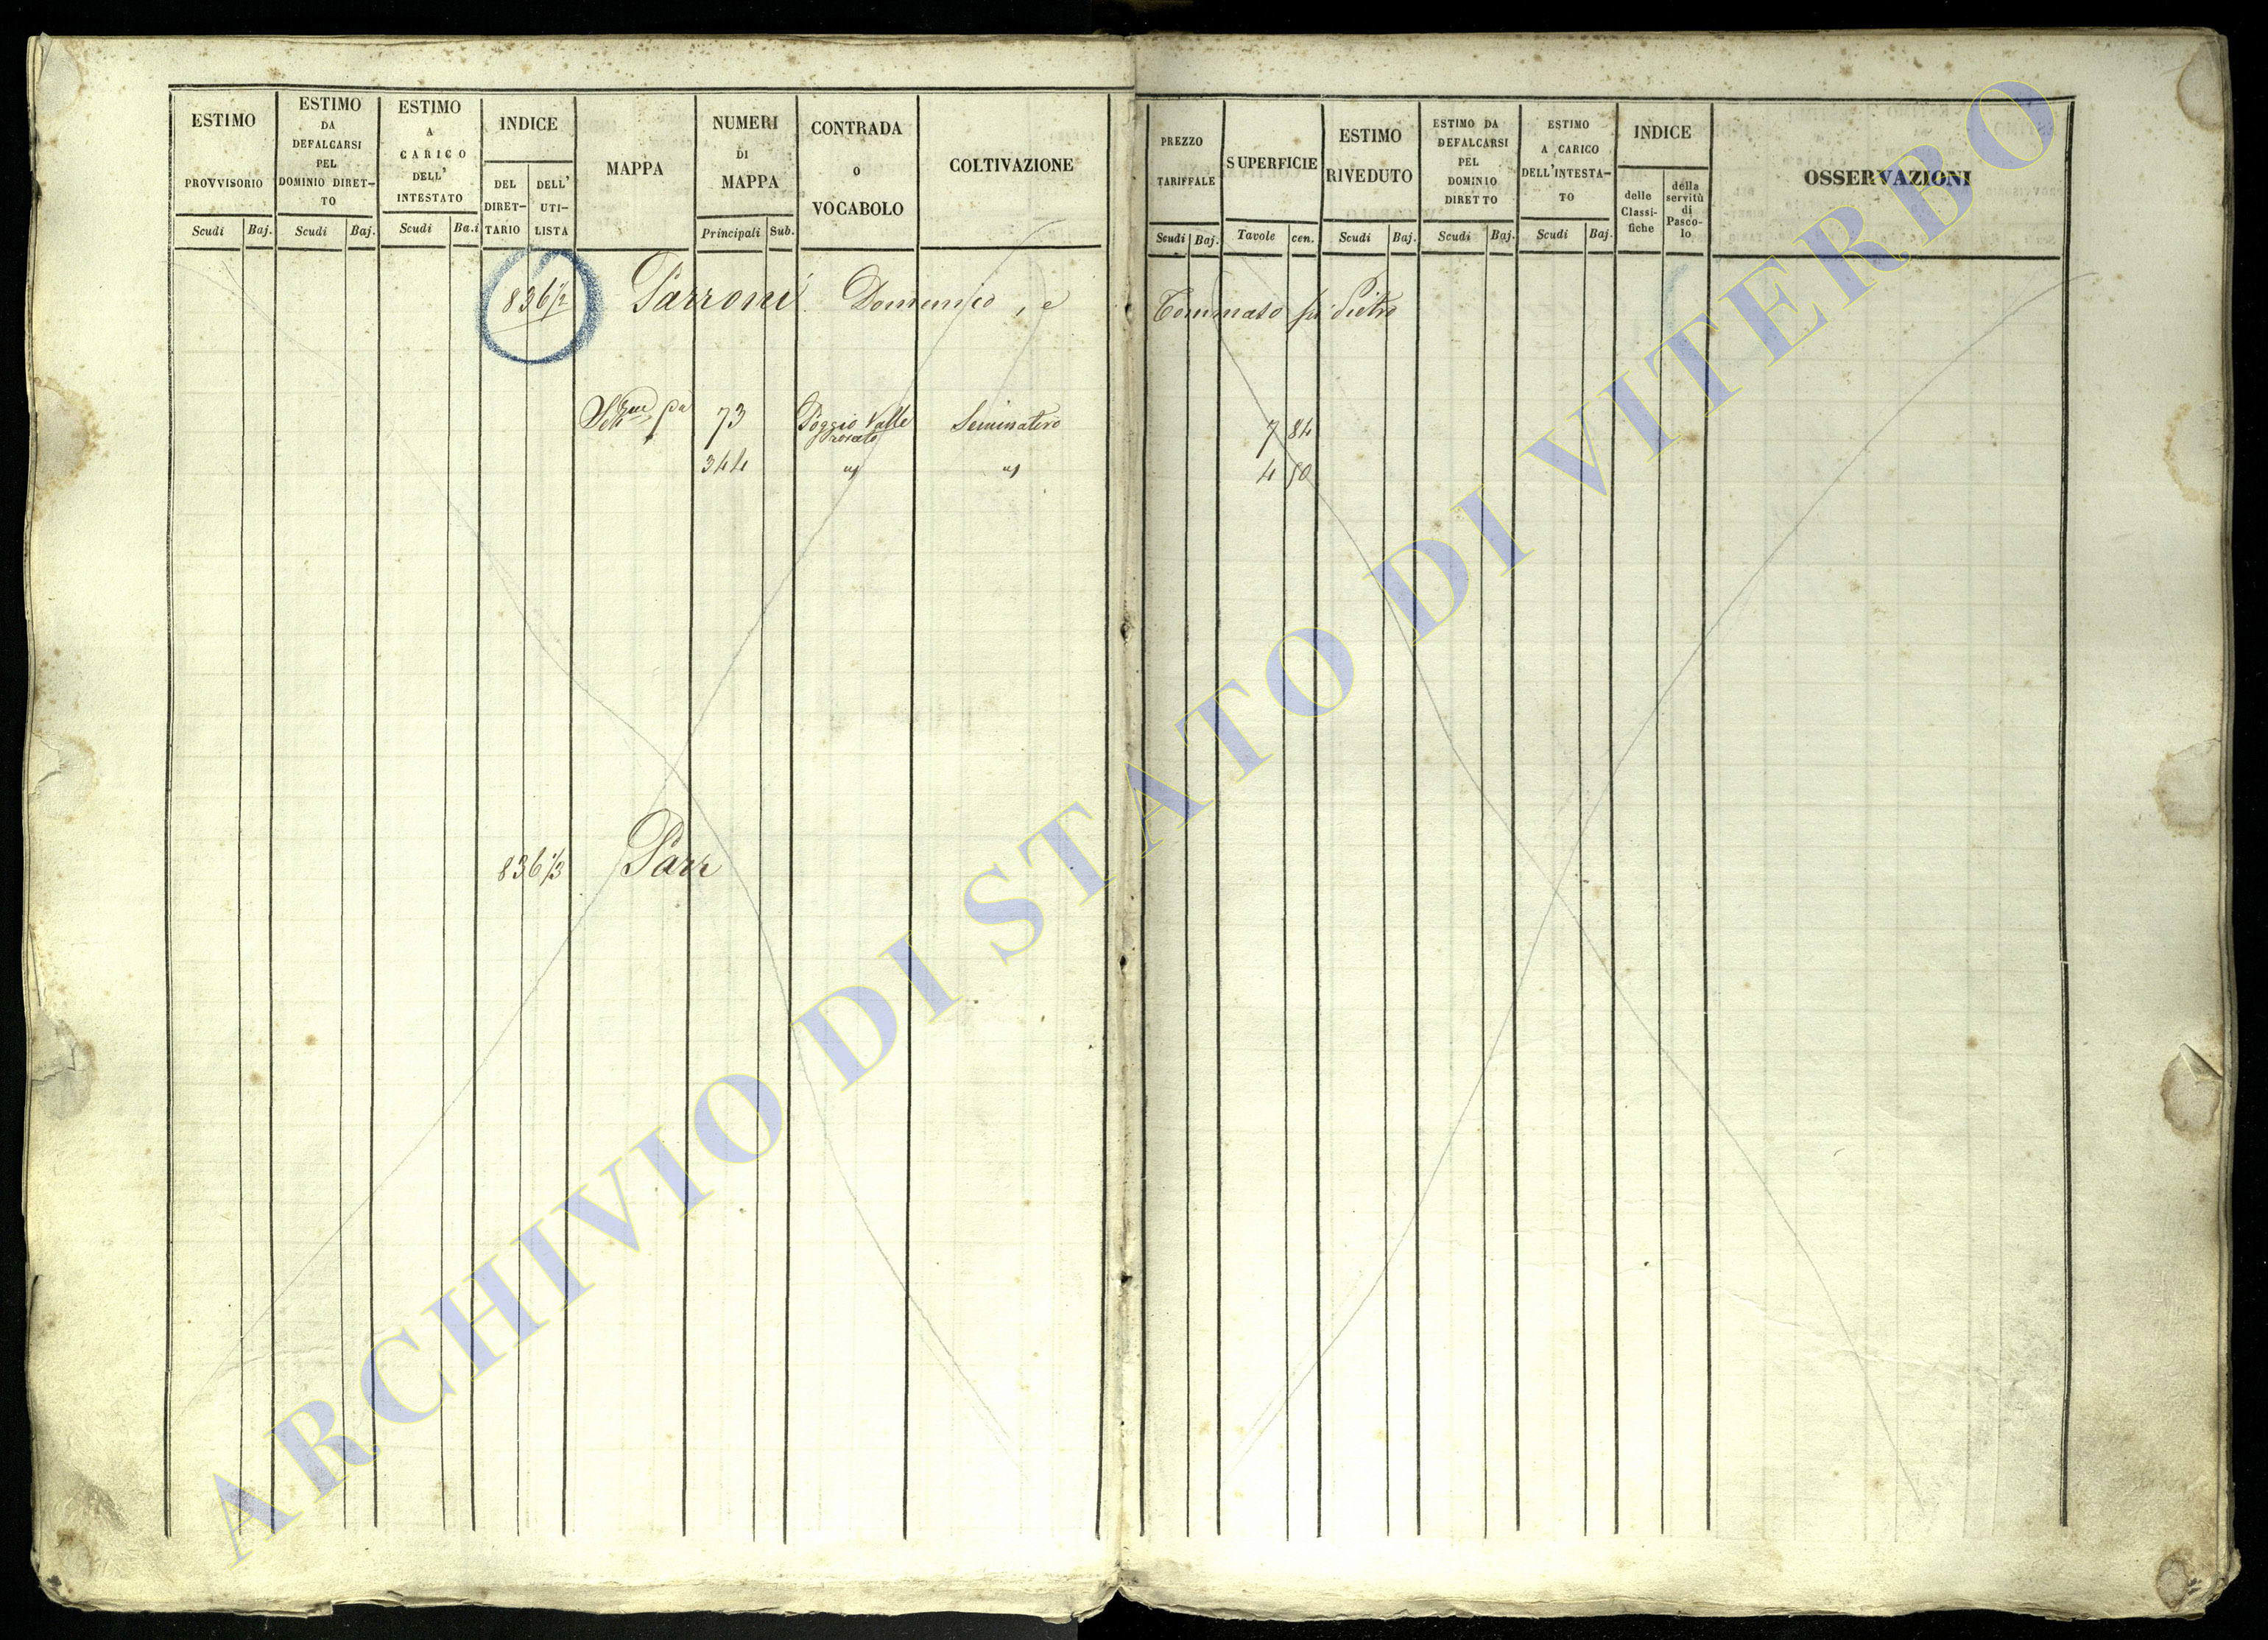 ESTIMO PROVVISORIO
Scudi Baj.
ESTIMO DA DEFALCARSI PEL DOMINIO DIRET-TO
Scudi Baj.
ESTIMO A CARICO DELL' INTESTATO
Scudi Ba.i
INDICE
DEL DIRET-TARIO
DELL' UTI-LISTA
MAPPA
NUMERI DI MAPPA
Principali Sub.
CONTRADA O VOCABOLO
COLTIVAZIONE
PREZZO TARIFFALE
Scudi Baj.
SUPERFICIE
Tavole cen.
ESTIMO RIVEDUTO
Scudi Baj.
ESTIMO DA DEFALCARSI PEL DOMINIO DIRETTO
Scudi Baj.
ESTIMO A CARICO DELL'INTESTA-TO
Scudi Baj.
INDICE
delle Classi-fiche
della servitù di Pasco-lo
OSSERVAZIONI
836 1/2 Parroni Domenico, e Tommaso fu Pietro
73 Poggio Valle Seminativo 7 84
344 " " 4 50
836 1/3 Parr
ARCHIVIO DI STATO DI VITERBO